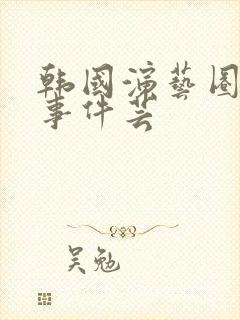 韩國演藝圈
事件芸
吴勉